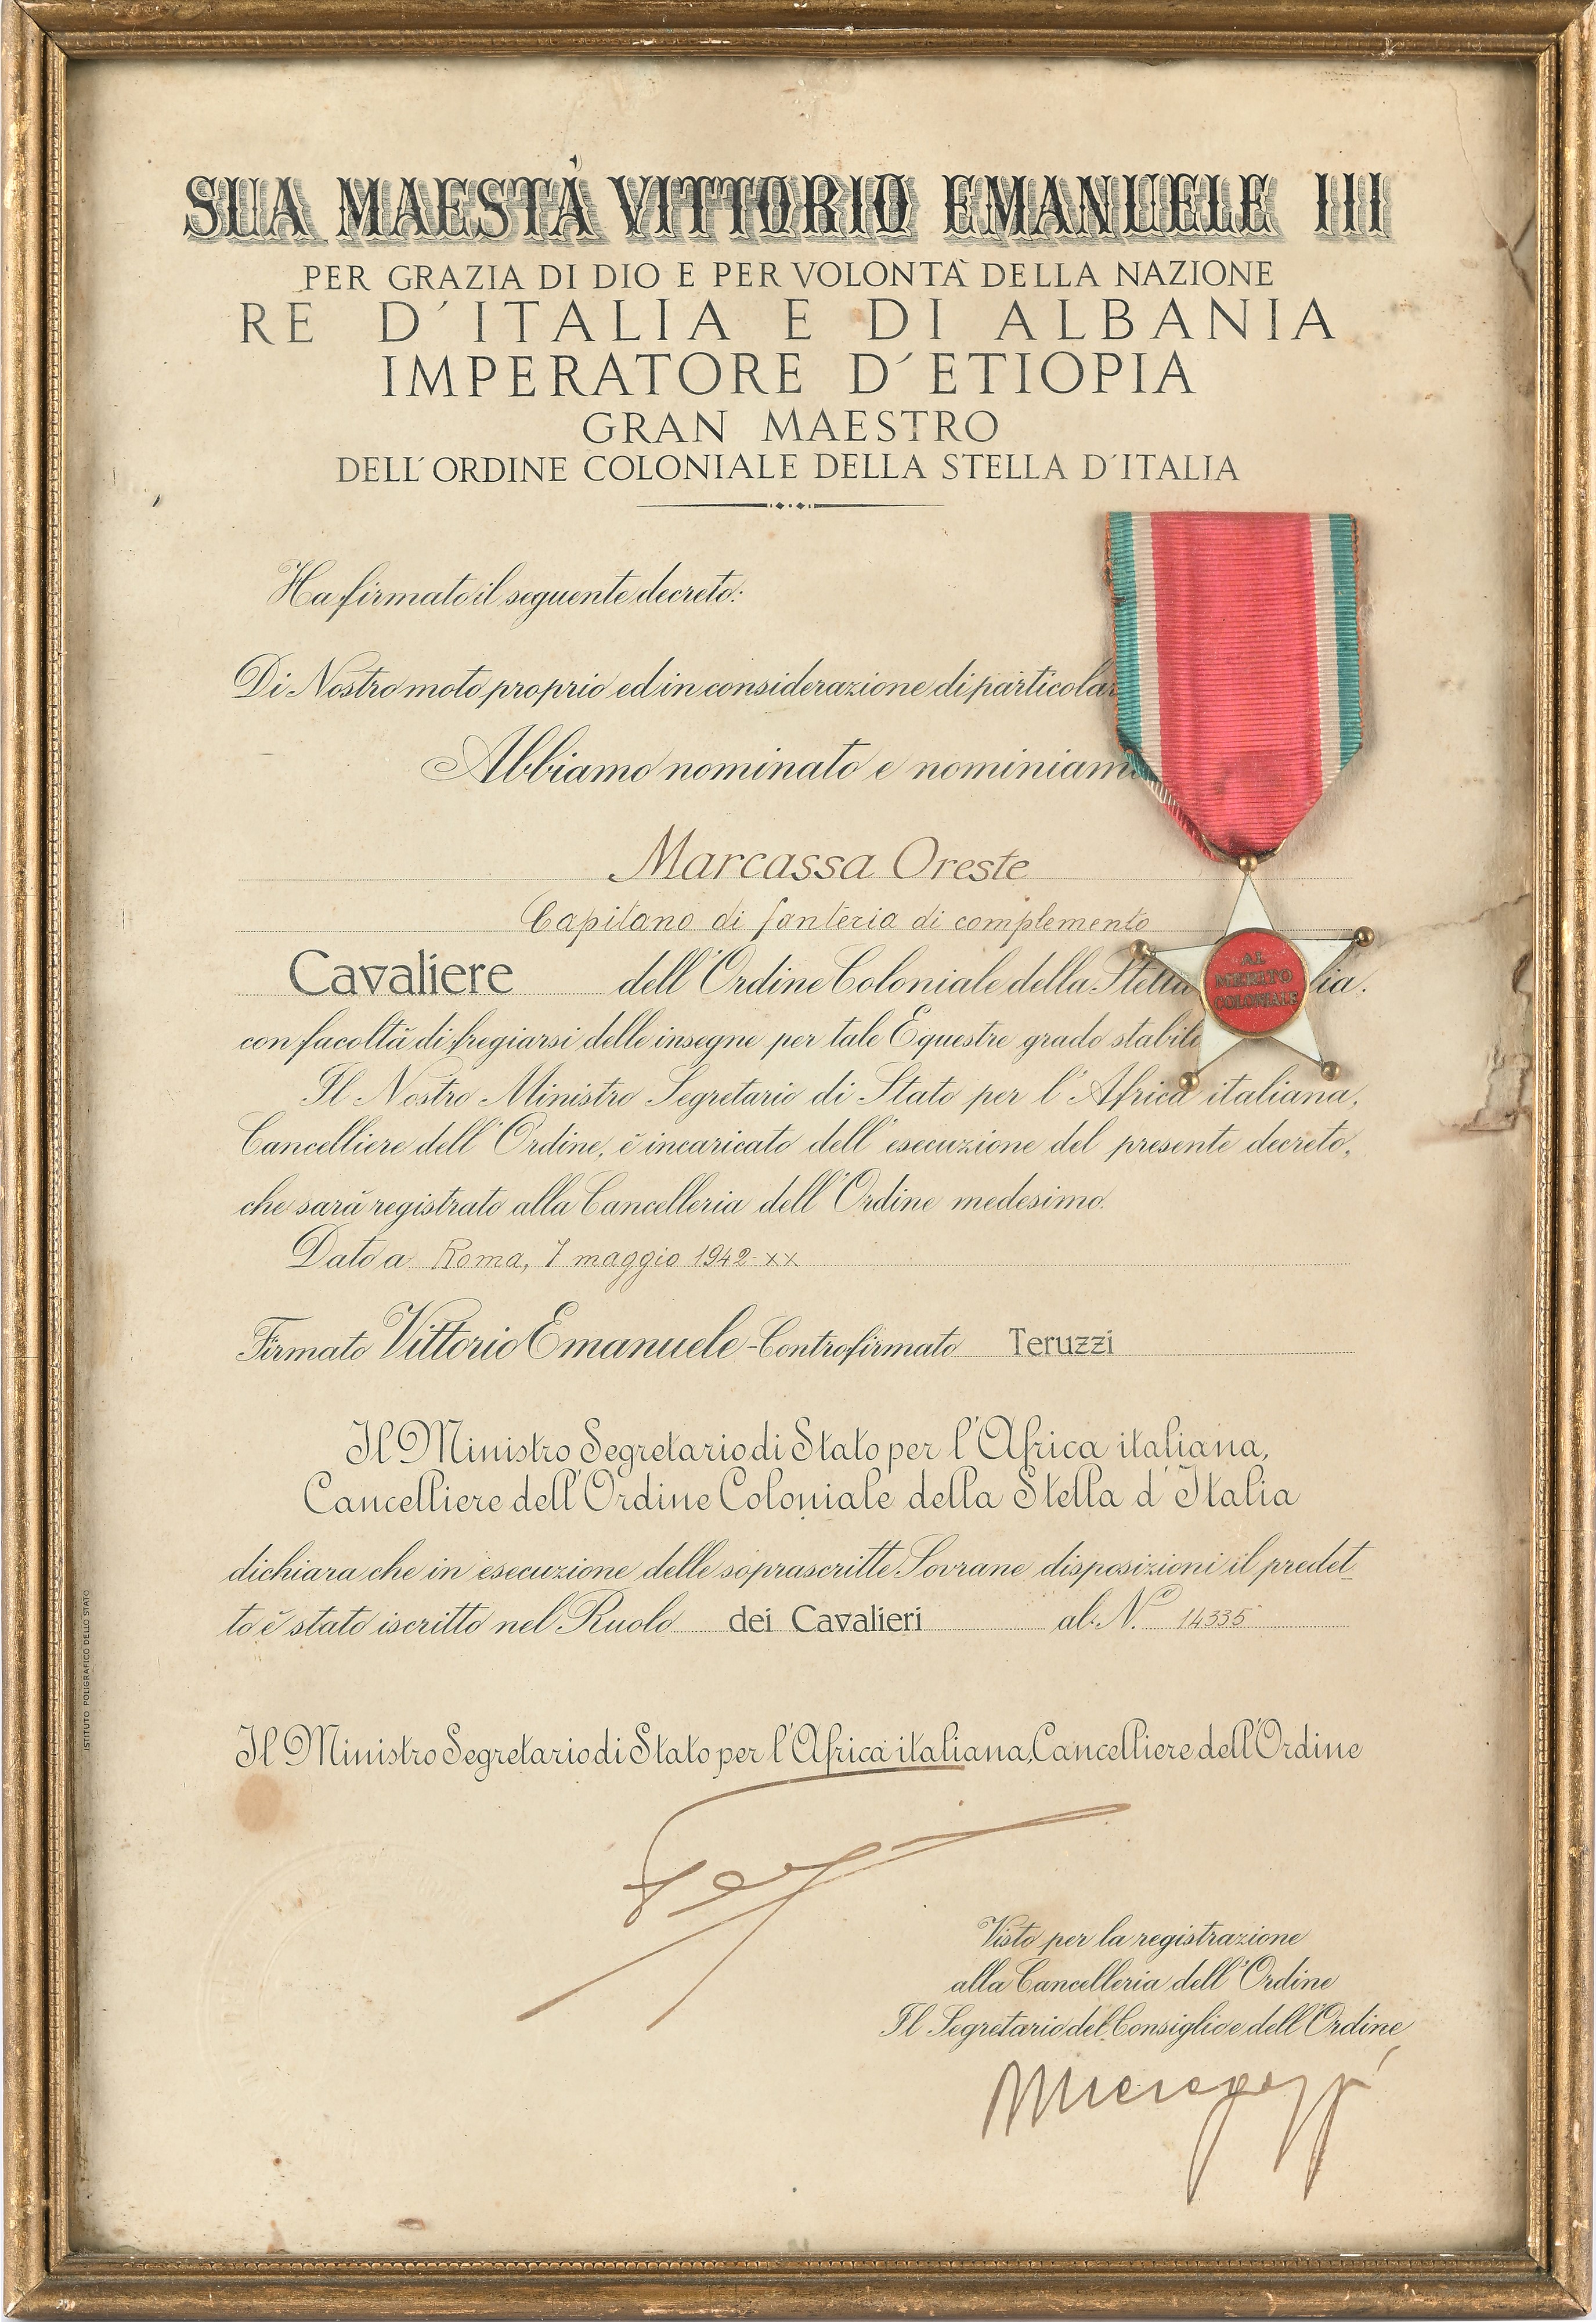 SUA MAESTÀ VITTORIO EMANUELE III
PER GRAZIA DI DIO E PER VOLONTÀ DELLA NAZIONE
RE D'ITALIA E DI ALBANIA
IMPERATORE D'ETIOPIA
GRAN MAESTRO
DELL'ORDINE COLONIALE DELLA STELLA D'ITALIA
Ha firmato il seguente decreto:
Di Nostro moto proprio ed in considerazione di particolar
Abbiamo nominato e nominiamo
Marcassa Oreste
Capitano di fanteria di complemento
Cavaliere dell'Ordine Coloniale della Stella lia.
con facoltà di fregiarsi delle insegne per tale Equestre grado stabili
Il Nostro Ministro Segretario di Stato per l'Africa italiana,
Cancelliere dell'Ordine, è incaricato dell'esecuzione del presente decreto,
che sarà registrato alla Cancelleria dell'Ordine medesimo.
Dato a Roma, 7 maggio 1942-XX
Firmato Vittorio Emanuele - Controfirmato Teruzzi
Il Ministro Segretario di Stato per l'Africa italiana,
Cancelliere dell'Ordine Coloniale della Stella d'Italia
dichiara che in esecuzione delle soprascritte Sovrane disposizioni il predet-
to è stato iscritto nel Ruolo dei Cavalieri al N.° 14335
Il Ministro Segretario di Stato per l'Africa italiana, Cancelliere dell'Ordine
Visto per la registrazione
alla Cancelleria dell'Ordine
Il Segretario del Consiglio e dell'Ordine
AL
MERITO
COLONIALE
ISTITUTO POLIGRAFICO DELLO STATO